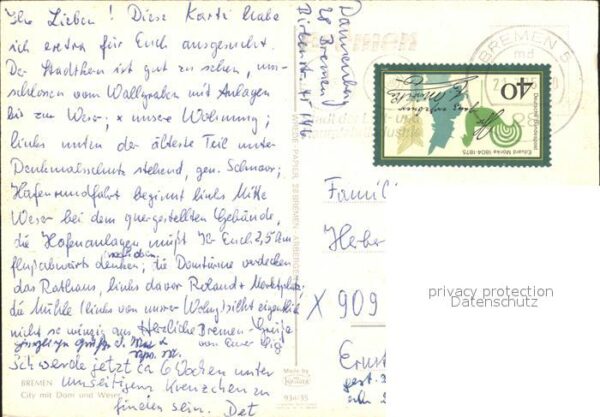 Ihr Lieben! Diese Karte habe
ich extra für Euch ausgesucht.
Der Stadtkern ist gut zu sehen, um-
schlossen vom Wallgraben mit Anlagen
bis zur Weser; x unsere Wohnung;
links unten der älteste Teil unter
Denkmalschutz stehend, gen. Schnoor;
Hafenrundfahrt beginnt links Mitte
Weser bei dem quergestellten Gebäude,
die Hafenanlagen müßt Ihr Euch 2,5 km
flußabwärts noch dazu denken; die Domtürme verdecken
das Rathaus, links davor Roland + Marktplatz;
die Mühle (links von unserer Wohng) sieht eigentlich
nicht so winzig aus. Herzliche Bremen-Grüße
von Eurer
Ich werde jetzt ca 6 Wochen unter
umseitigem Kreuzchen zu
finden sein. Det
BREMEN
City mit Dom und Weser
Dannenberg
28 Bremen
Birkenstr.
BREMEN 5
md
40
Deutsche Bundespost
Eduard Mörike 1804-1875
Famili
Herber
X 909
Ernst
Made by
Krüger
934/35
privacy protection
Datenschutz